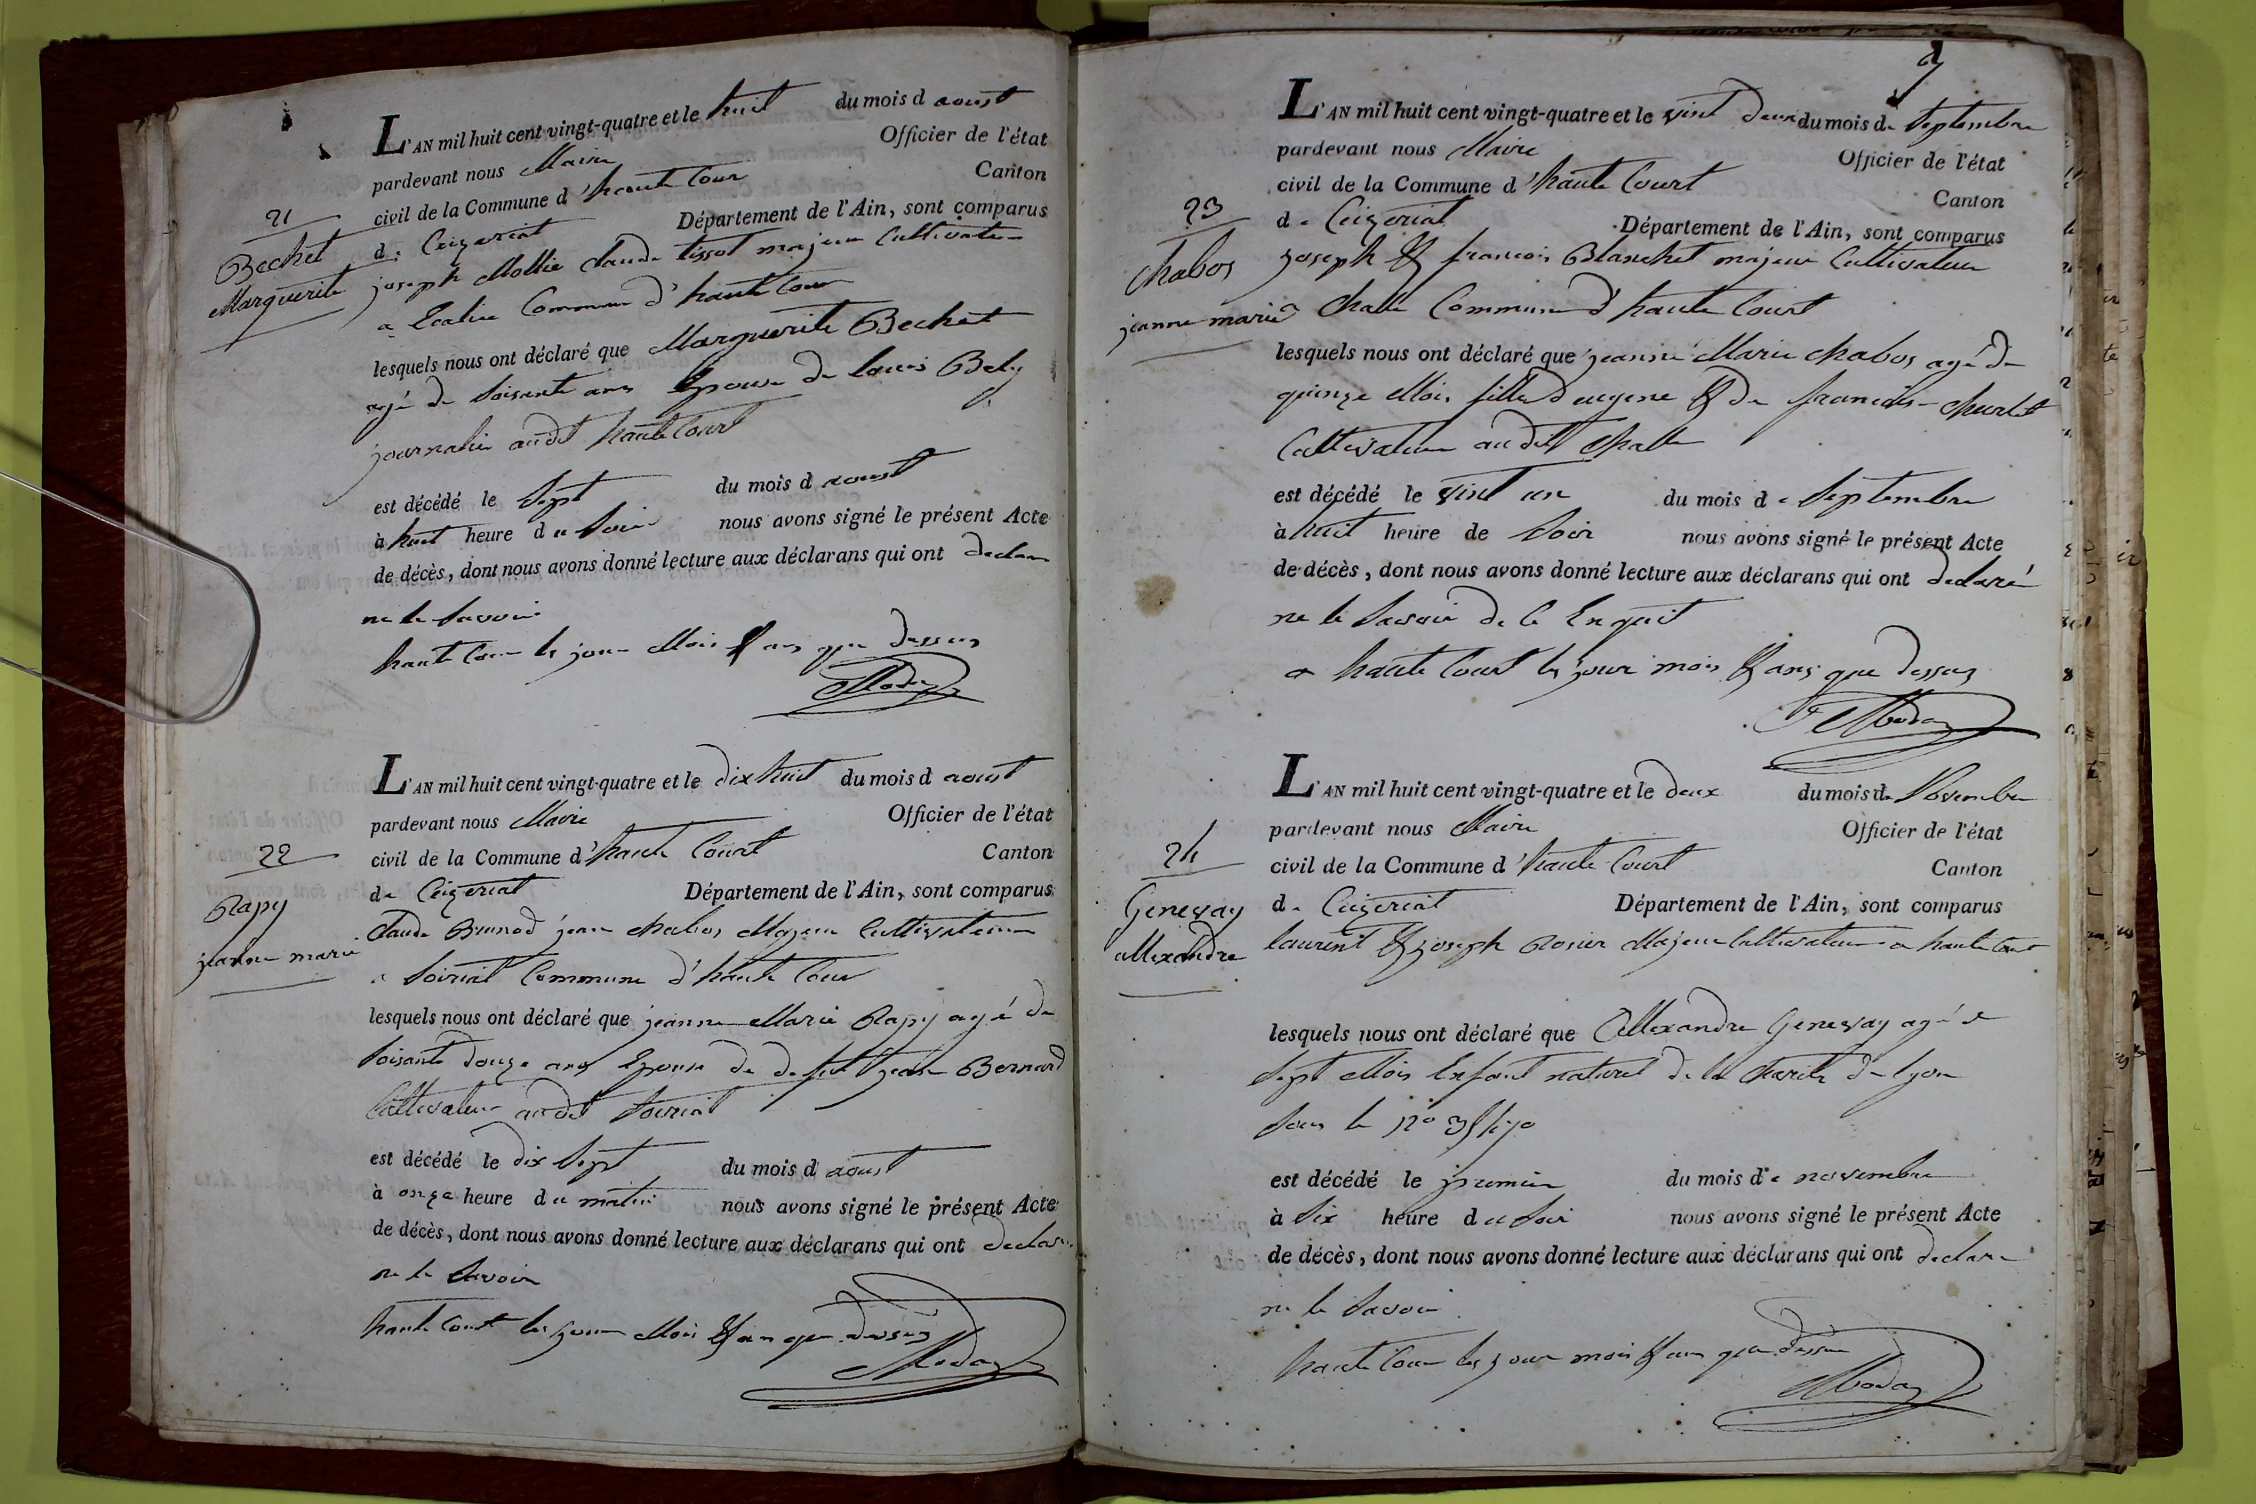 L'AN mil huit cent vingt-quatre et le huit du mois d aoust
pardevant nous Maire Officier de l'état
civil de la Commune d'haute Cour Canton
de Ceizeriat Département de l'Ain, sont comparus
21
Bechet
Marguerite
joseph Mollie Claude tissot majeur Cultivateur
a Commune d'haute Cour
lesquels nous ont déclaré que Marguerite Bechet
agé de soisante ans Epouse de louis Bely
journalier audit haute Court
est décédé le Sept du mois d aoust
à huit heure du Soir nous avons signé le présent Acte
de décès, dont nous avons donné lecture aux déclarans qui ont declare
ne le Savoir
haute Cour les jour Mois & an que dessus
L'AN mil huit cent vingt-quatre et le dix huit du mois d aoust
pardevant nous Maire Officier de l'état
22
civil de la Commune d'haute Court Canton
de Ceizeriat Département de l'Ain, sont comparus
Rapy
jeanne marie
Claude Brunod jean chabos Majeur Cultivateur
a Soiriat Commune d'haute Cour
lesquels nous ont déclaré que jeanne Marie Rapy agé de
Soisante douze ans Epouse de defunt jean Bernard
Cultivateur audit Soiriat
est décédé le dix Sept du mois d aoust
à onze heure du matin nous avons signé le présent Acte
de décès, dont nous avons donné lecture aux déclarans qui ont declare
ne le Savoir
haute Court les jour Mois & an que dessus
L'AN mil huit cent vingt-quatre et le vint deux du mois de Septembre
pardevant nous Maire Officier de l'état
civil de la Commune d'haute Court Canton
23
de Ceizeriat Département de l'Ain, sont comparus
Chabos
jeanne marie
joseph & francois Blanchet majeur Cultivateur
a Challe Commune d'haute Court
lesquels nous ont déclaré que jeanne Marie chabos agé de
quinze Mois fille d'eugene & de
Cultivateur audit Challe
est décédé le vint un du mois de Septembre
à huit heure de Soir nous avons signé le présent Acte
de décès, dont nous avons donné lecture aux déclarans qui ont declaré
ne le Savoir de ce Enquit
a haute Court les jour mois & ans que dessus
L'AN mil huit cent vingt-quatre et le deux du mois de Novembre
pardevant nous Maire Officier de l'état
24
civil de la Commune d'haute Court Canton
Genevay
allexandre
de Ceizeriat Département de l'Ain, sont comparus
laurent & joseph Rosier Majeur Cultivateur a haute Court
lesquels nous ont déclaré que Allexandre Genevay agé de
Sept Mois Enfant naturel de la charité de lyon
Sous le no
est décédé le premier du mois de novembre
à Six heure du Soir nous avons signé le présent Acte
de décès, dont nous avons donné lecture aux déclarans qui ont declare
ne le Savoir
haute Cour les jour mois & an que dessus